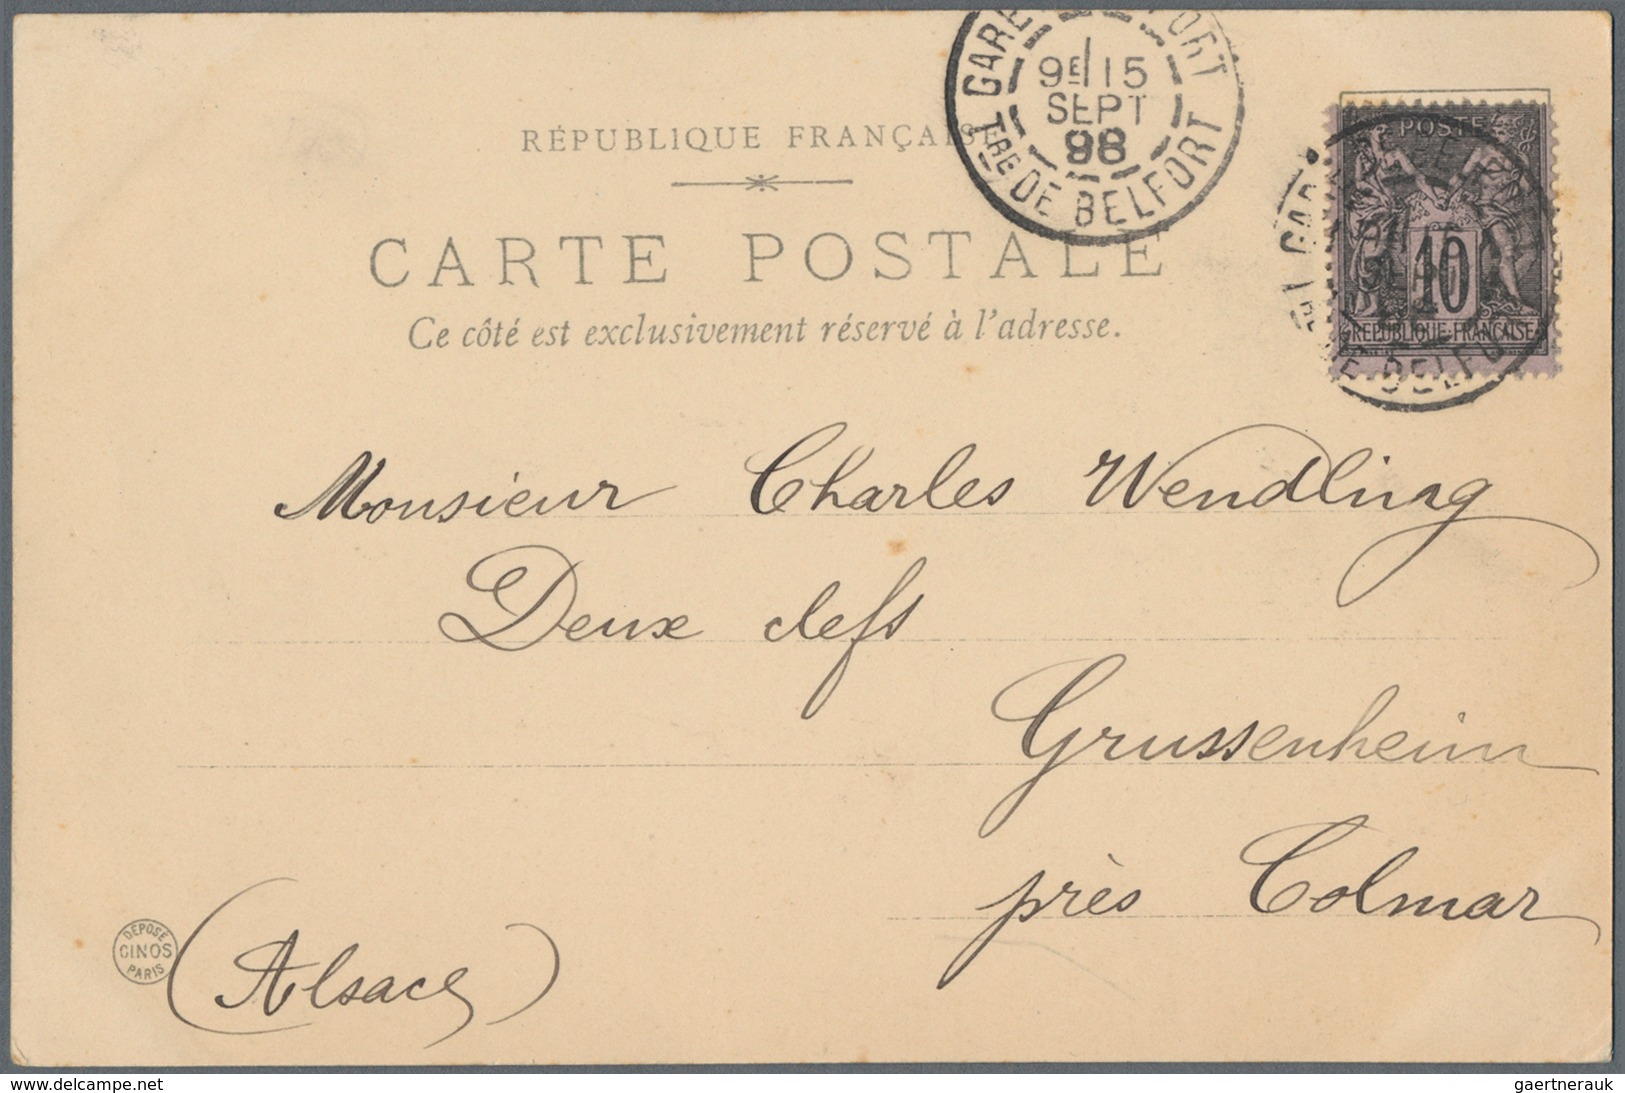 GARE BELFORT
9E 15
SEPT
98
Tre DE BELFORT
RÉPUBLIQUE FRANÇAISE
CARTE POSTALE
Ce côté est exclusivement réservé à l'adresse.
POSTE
10
REPUBLIQUE FRANCAISE
Monsieur Charles Wendling
Deux clefs
Grussenheim
près Colmar
(Alsace)
DÉPOSÉ
GINOS
PARIS
www.delcampe.net
gaertnerauk